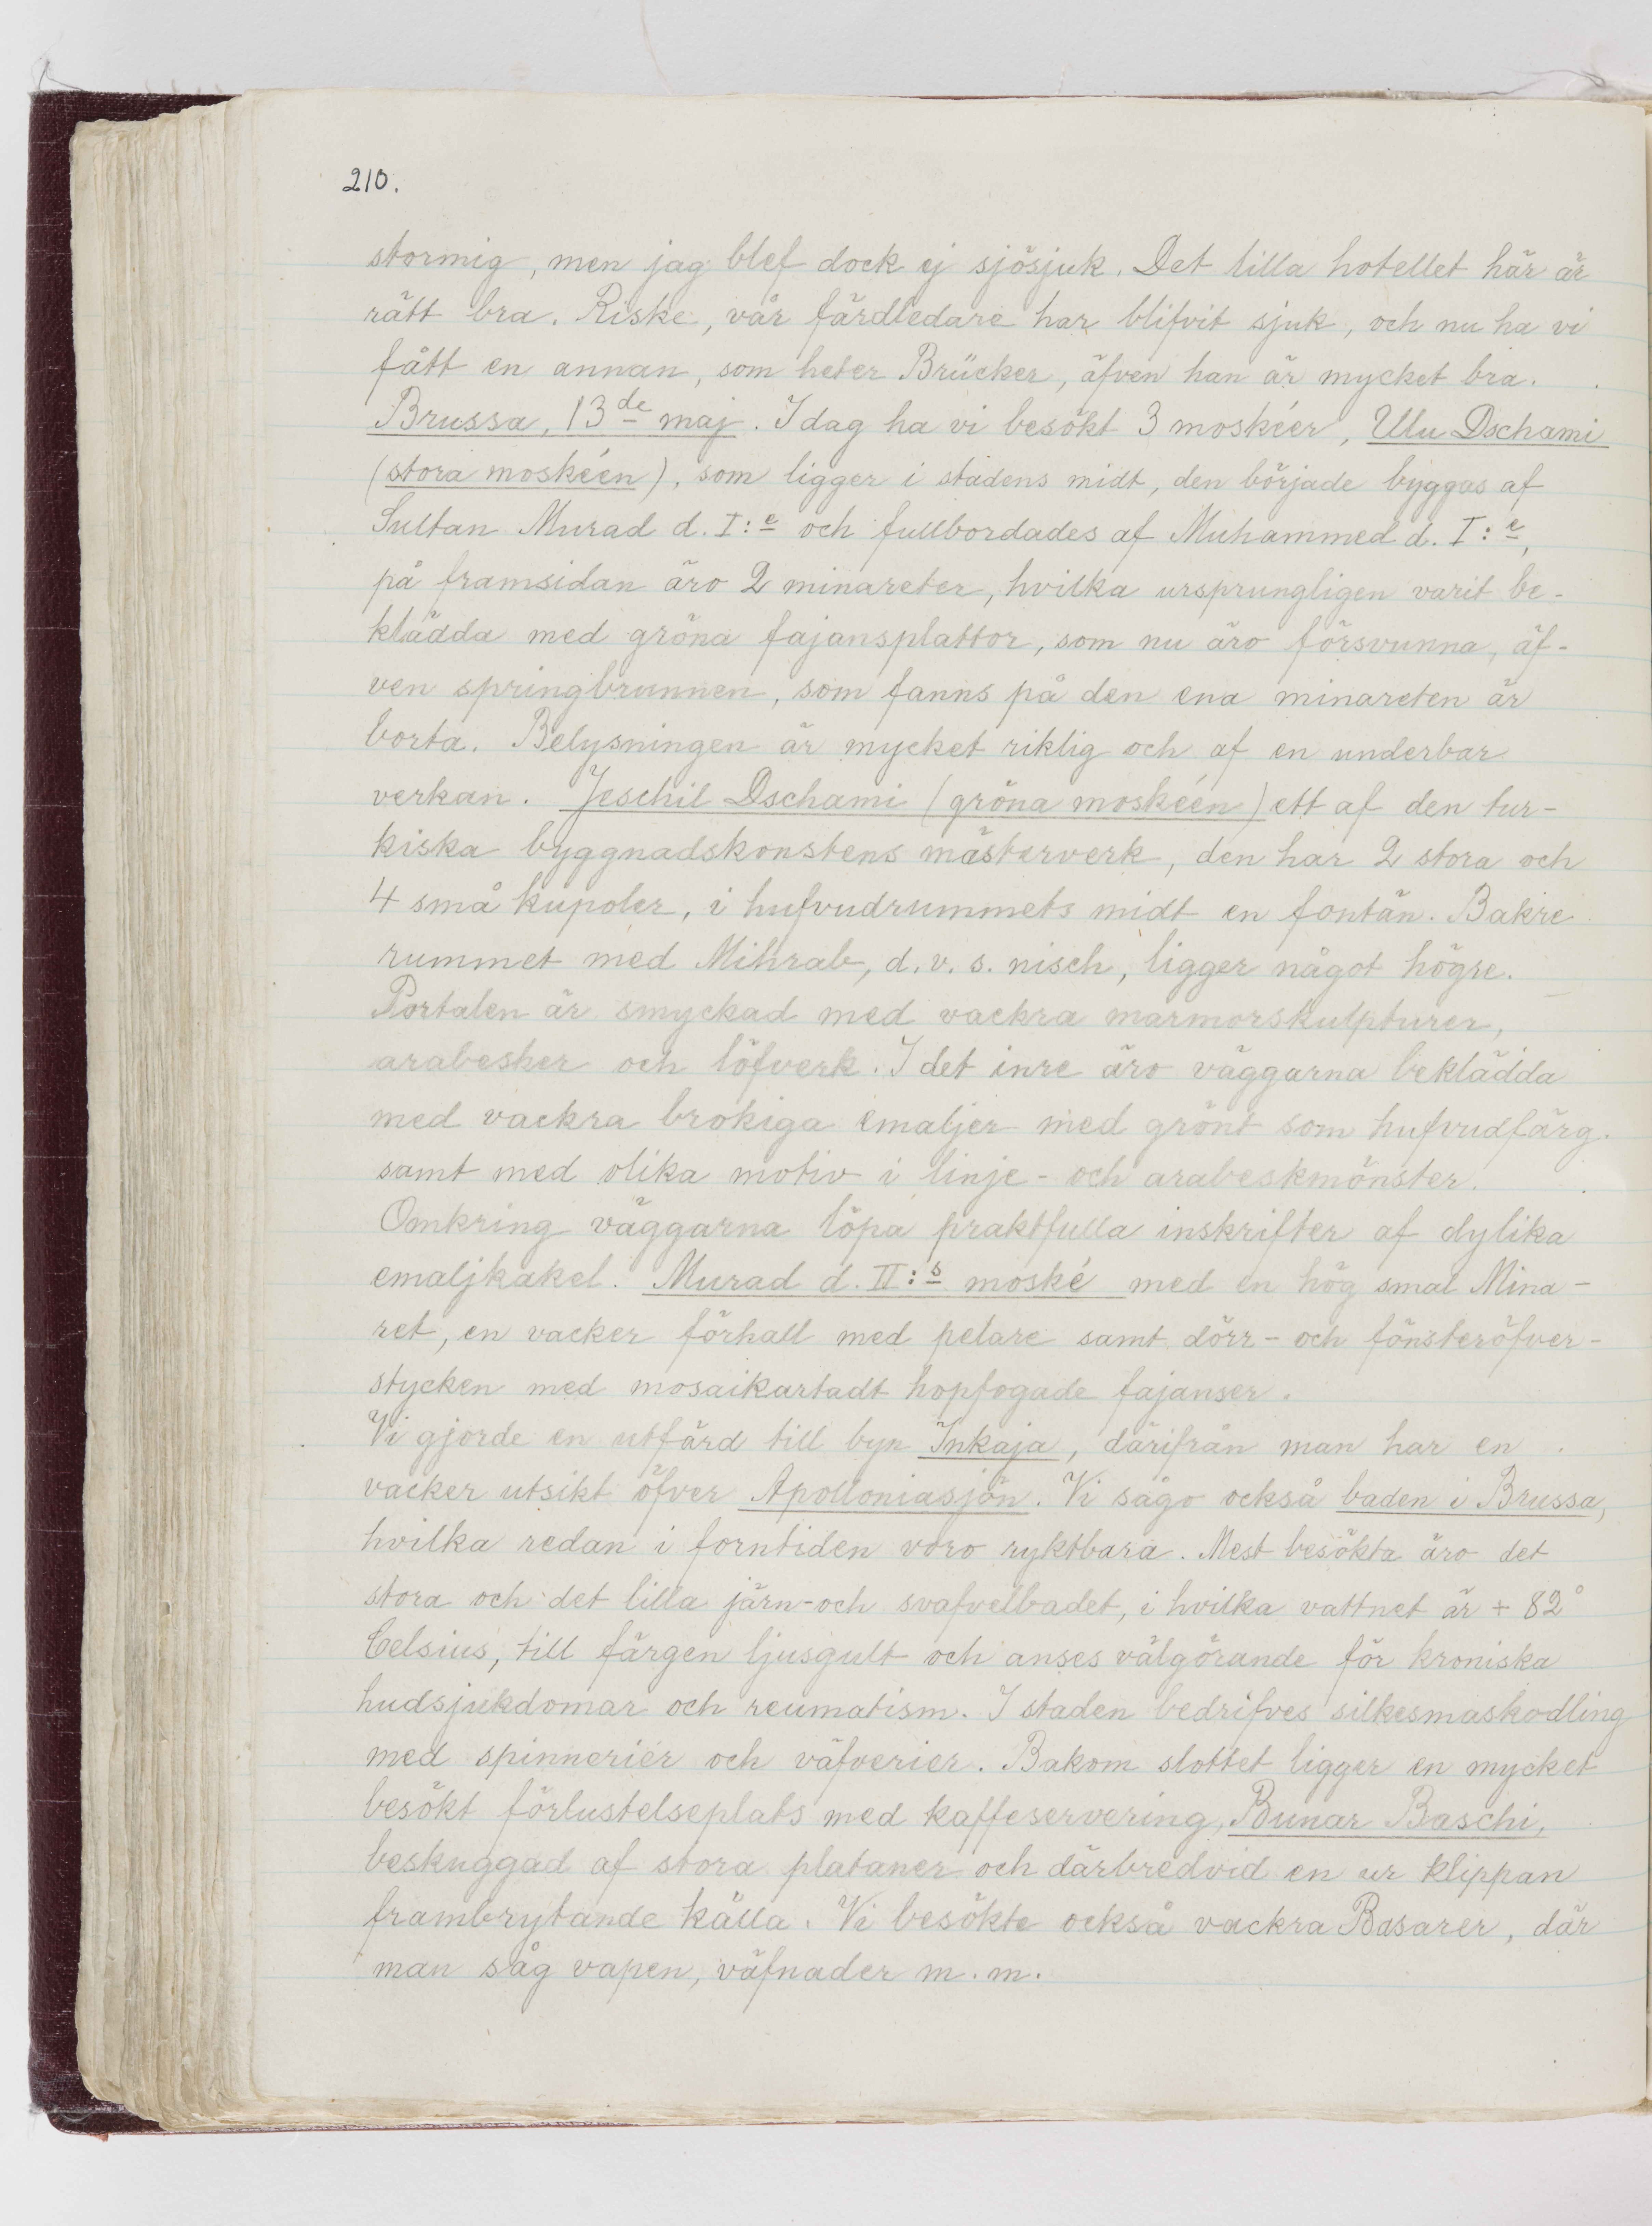 210.
stormig, men jag blef dock ej sjösjuk. Det lilla hotellet här är
rätt bra. Riske, vår färdledare har blifvit sjuk, och nu ha vi
fått en annan, som heter Brücker, äfven han är mycket bra.
Brussa, 13de maj. I dag ha vi besökt 3 moskéer, Ulu Dschami
(stora moskéen), som ligger i stadens midt, den började byggas af
Sultan Murad d. I:e och fullbordades af Muhammed d. I:e,
på framsidan äro 2 minareter, hvilka ursprungligen varit be-
klädda med gröna fajansplattor, som nu äro försvunna, äf-
ven springbrunnen, som fanns på den ena minareten är
borta. Belysningen är mycket riklig och af en underbar
verkan. Jeschil Dschami (gröna moskéen) ett af den tur-
kiska byggnadskonstens mästerverk, den har 2 stora och
4 små kupoler, i hufvudrummets midt en fontän. Bakre
rummet med Mihrab, d.v.s. nisch, ligger något högre.
Portalen är smyckad med vackra marmorskulpturer,
arabesker och löfverk. I det inre äro väggarna beklädda
med vackra brokiga emaljer med grönt som hufvudfärg.
samt med olika motiv i linje- och arabeskmönster.
Omkring väggarna löpa praktfulla inskrifter af dylika
emaljkakel. Murad d. II:s moské med en hög smal Mina-
ret, en vacker förhall med pelare samt dörr- och fönsteröfver-
stycken med mosaikartadt hopfogade fajanser.
Vi gjorde en utfärd till byn Inkaja, därifrån man har en
vacker utsikt öfver Apolloniasjön. Vi sågo också baden i Brussa,
hvilka redan i forntiden voro ryktbara. Mest besökta äro det
stora och det lilla järn- och svafvelbadet, i hvilka vattnet är + 82°
Celsius, till färgen ljusgult och anses välgörande för kroniska
hudsjukdomar och reumatism. I staden bedrifves silkesmaskodling
med spinnerier och väfverier. Bakom slottet ligger en mycket
besökt förlustelseplats med kaffeservering, Bunar Baschi,
beskuggad af stora plataner och därbredvid en ur klippan
frambrytande källa. Vi besökte också vackra Basarer, där
man såg vapen, väfnader m.m.